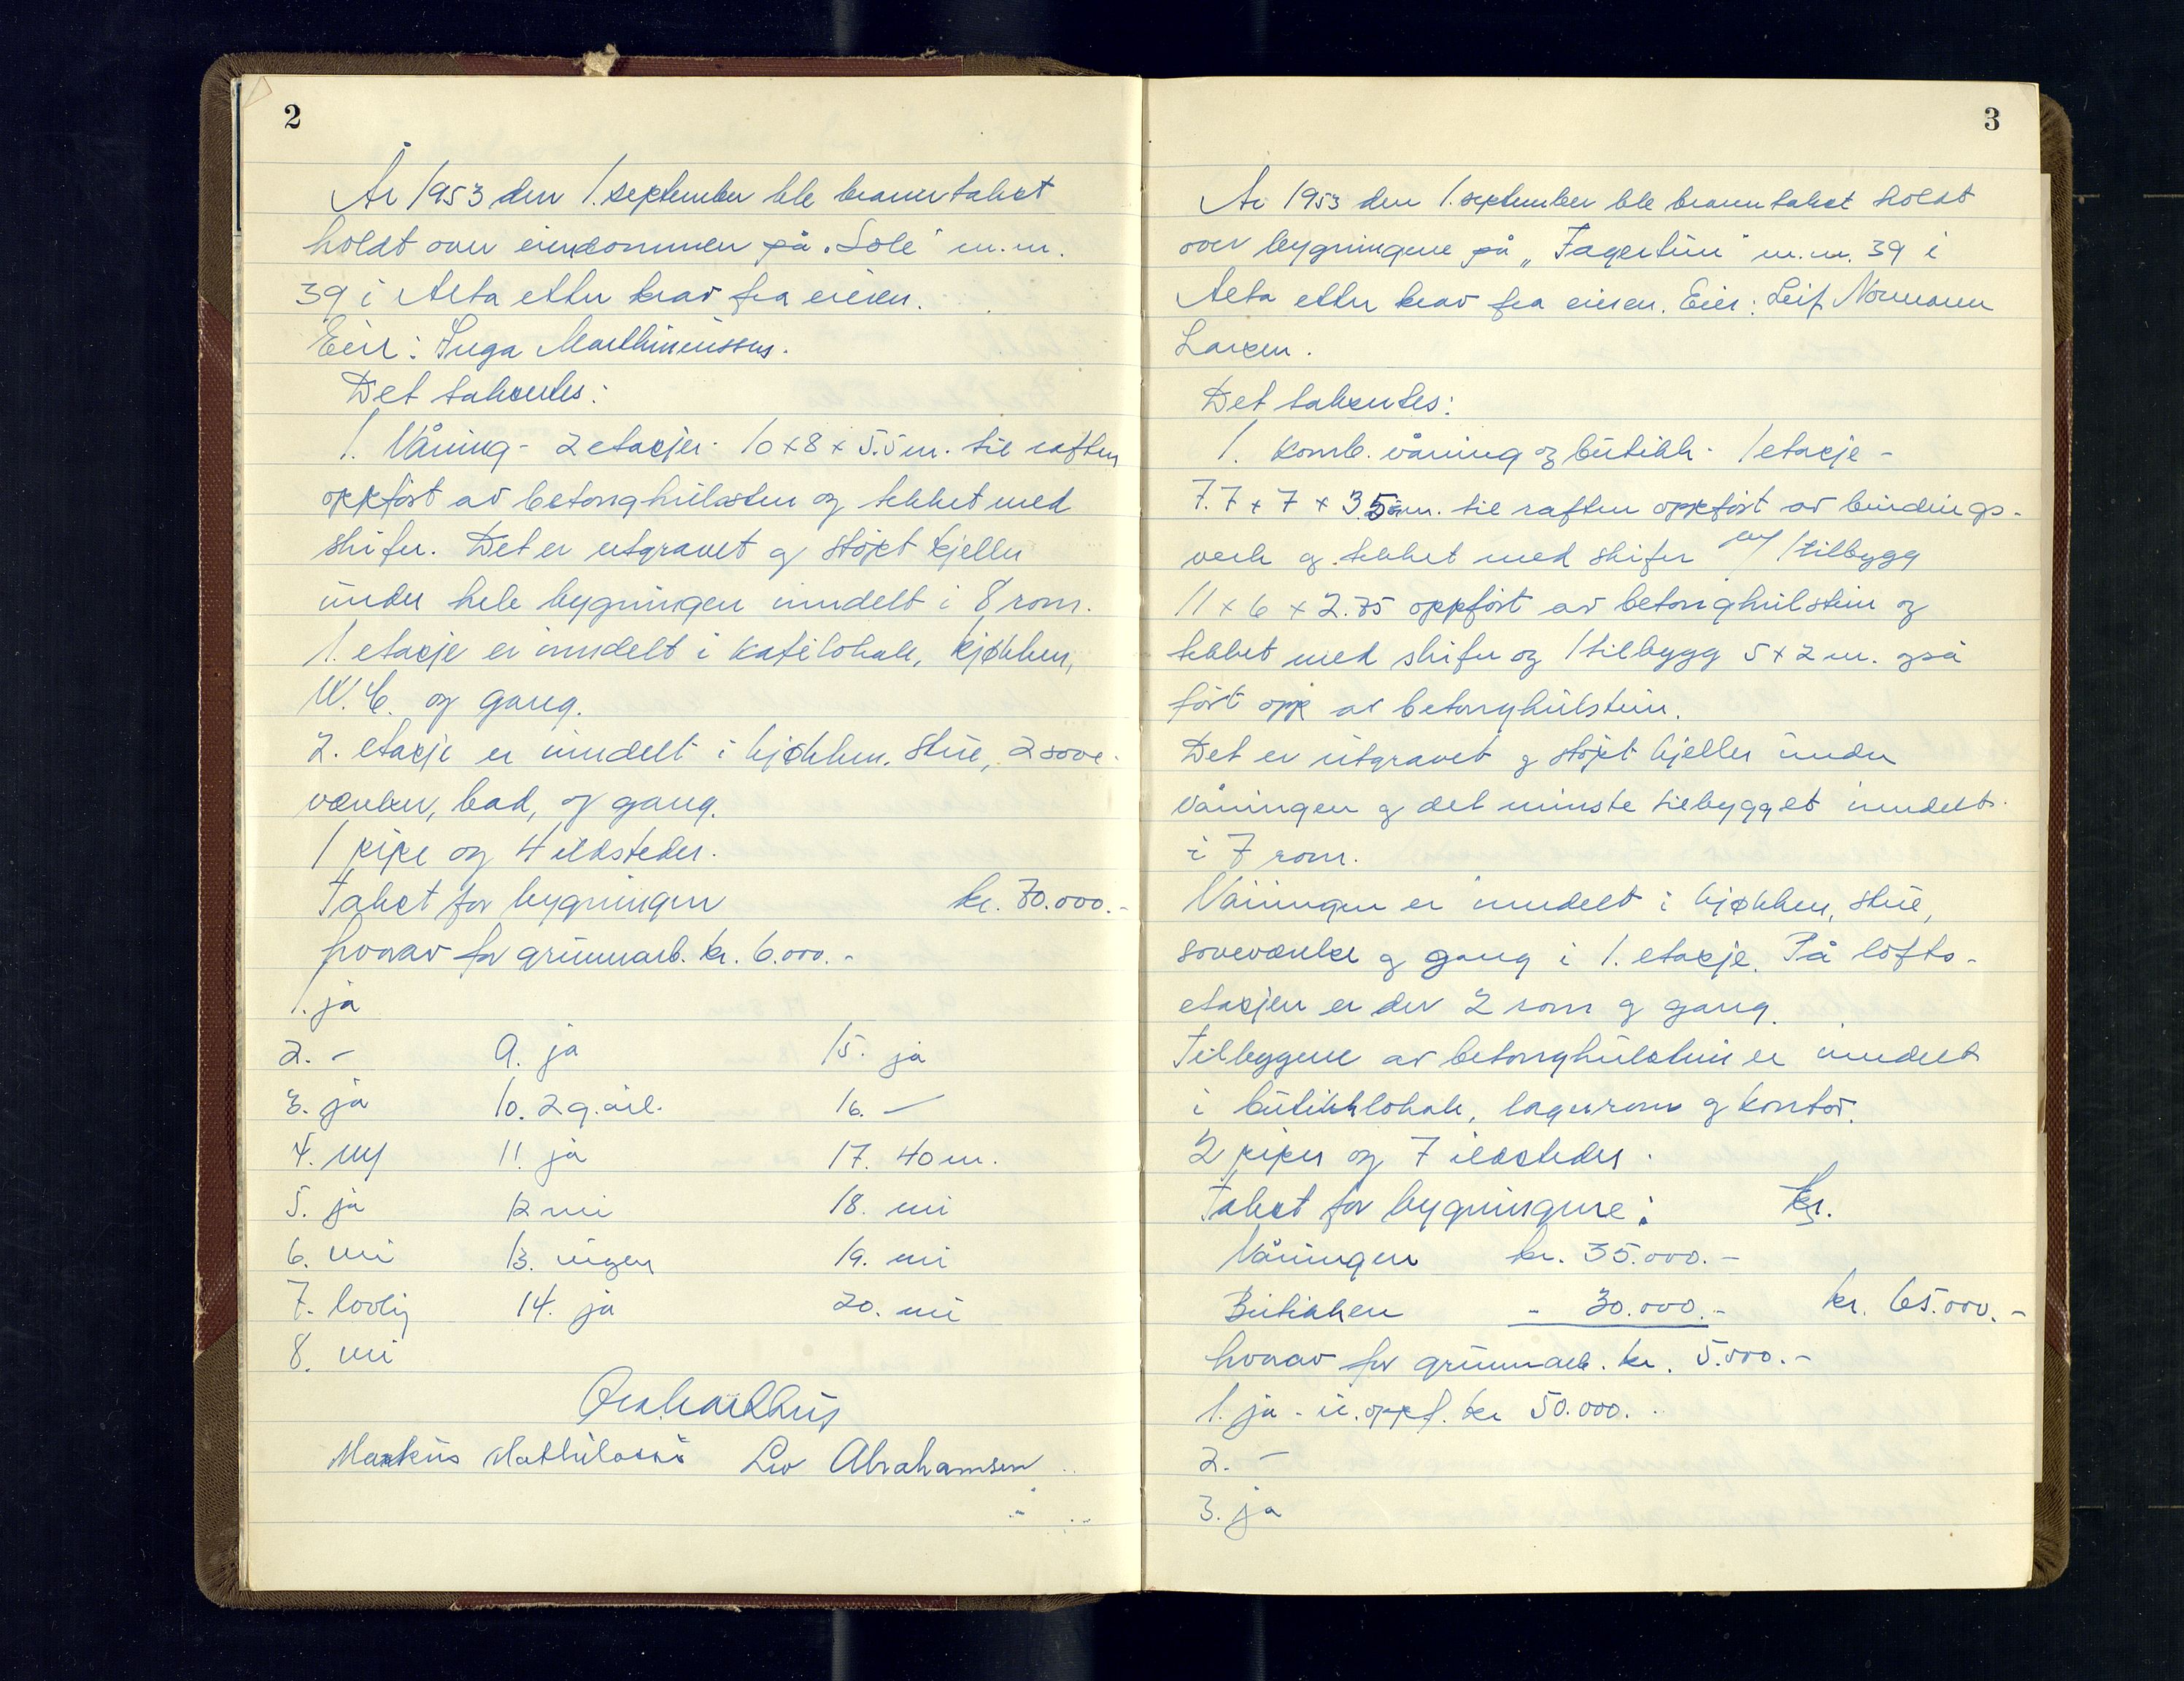 2
År 1953 den 1. september ble branntakst
holdt over eiendommen på "Sole" m.nr.
39 i Alta etter krav fra eieren.
Eier: Inga Marthinussen.
Det taksertes:
1. Våning - 2 etasjer - 10 x 8 x 5.5 m. til raften
oppført av betonghulsten og tekket med
skifer. Det er utgravet og støpt kjeller
under hele bygningen inndelt i 8 rom.
1. etasje er inndelt i kafélokale, kjøkken,
W.C. og gang.
2. etasje er inndelt i kjøkken, stue, 2 sove-
værelser, bad, og gang.
1 pipe og 4 ildsteder.
Takst for bygningen kr. 70.000.-
hvorav for grunnarb. kr. 6.000.-
1. ja
2. - 9. ja 15. ja
3. ja 10. 2 g. årl. 16. -
4. ny 11. ja 17. 40 m.
5. ja 12 nei 18. nei
6. nei 13. ingen 19. nei
7. lovlig 14. ja 20. nei
8. nei
Markus Mathilassi Leo Abrahamsen
3
År 1953 den 1. september ble branntakst holdt
over bygningene på "Fagertun" m.nr. 39 i
Alta etter krav fra eieren. Eier: Leif Normann
Larsen.
Det taksertes:
1. Komb. våning og butikk - 1 etasje -
7.7 x 7 x 3.5 m. til raften oppført av bindings-
verk og tekket med skifer og 1 tilbygg
11 x 6 x 2.75 oppført av betonghulstein og
tekket med skifer og 1 tilbygg 5 x 2 m. også
ført opp av betonghulstein.
Det er utgravet og støpt kjeller under
våningen og det minste tilbygget inndelt
i 7 rom.
Våningen er inndelt i kjøkken, stue,
soveværelse og gang i 1. etasje. På lofts-
etasjen er der 2 rom og gang.
Tilbyggene av betonghulstein er inndelt
i butikklokale, lagerrom og kontor.
2 piper og 7 ildsteder.
Takst for bygningene: Kr.
Våningen kr. 35.000.-
Butikken - 30.000.- kr. 65.000.-
hvorav for grunnarb. kr. 5.000.-
1. ja - u. oppf. kr 50.000.
2. -
3. ja